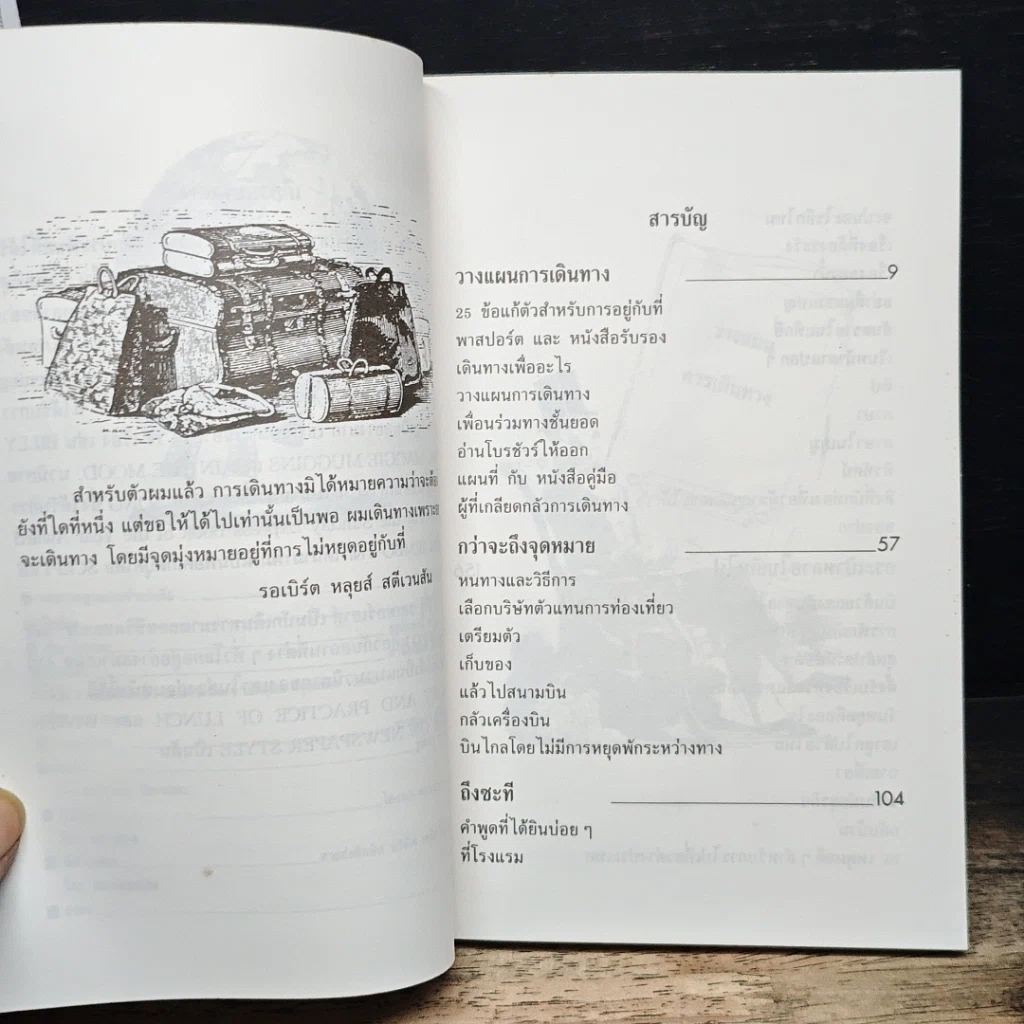 สำหรับตัวผมแล้ว การเดินทางมิได้หมายความว่าจะต้อง
ยังที่ใดที่หนึ่ง แต่ขอให้ได้ไปเท่านั้นเป็นพอ ผมเดินทางเพราะ
จะเดินทาง โดยมีจุดมุ่งหมายอยู่ที่การไม่หยุดอยู่กับที่
รอเบิร์ต หลุยส์ สตีเวนสัน
สารบัญ
วางแผนการเดินทาง 9
25 ข้อแก้ตัวสำหรับการอยู่กับที่
พาสปอร์ต และ หนังสือรับรอง
เดินทางเพื่ออะไร
วางแผนการเดินทาง
เพื่อนร่วมทางชั้นยอด
อ่านโบรชัวร์ให้ออก
แผนที่ กับ หนังสือคู่มือ
ผู้ที่เกลียดกลัวการเดินทาง
กว่าจะถึงจุดหมาย 57
หนทางและวิธีการ
เลือกบริษัทตัวแทนการท่องเที่ยว
เตรียมตัว
เก็บของ
แล้วไปสนามบิน
กลัวเครื่องบิน
บินไกลโดยไม่มีการหยุดพักระหว่างทาง
ถึงซะที 104
คำพูดที่ได้ยินบ่อย ๆ
ที่โรงแรม